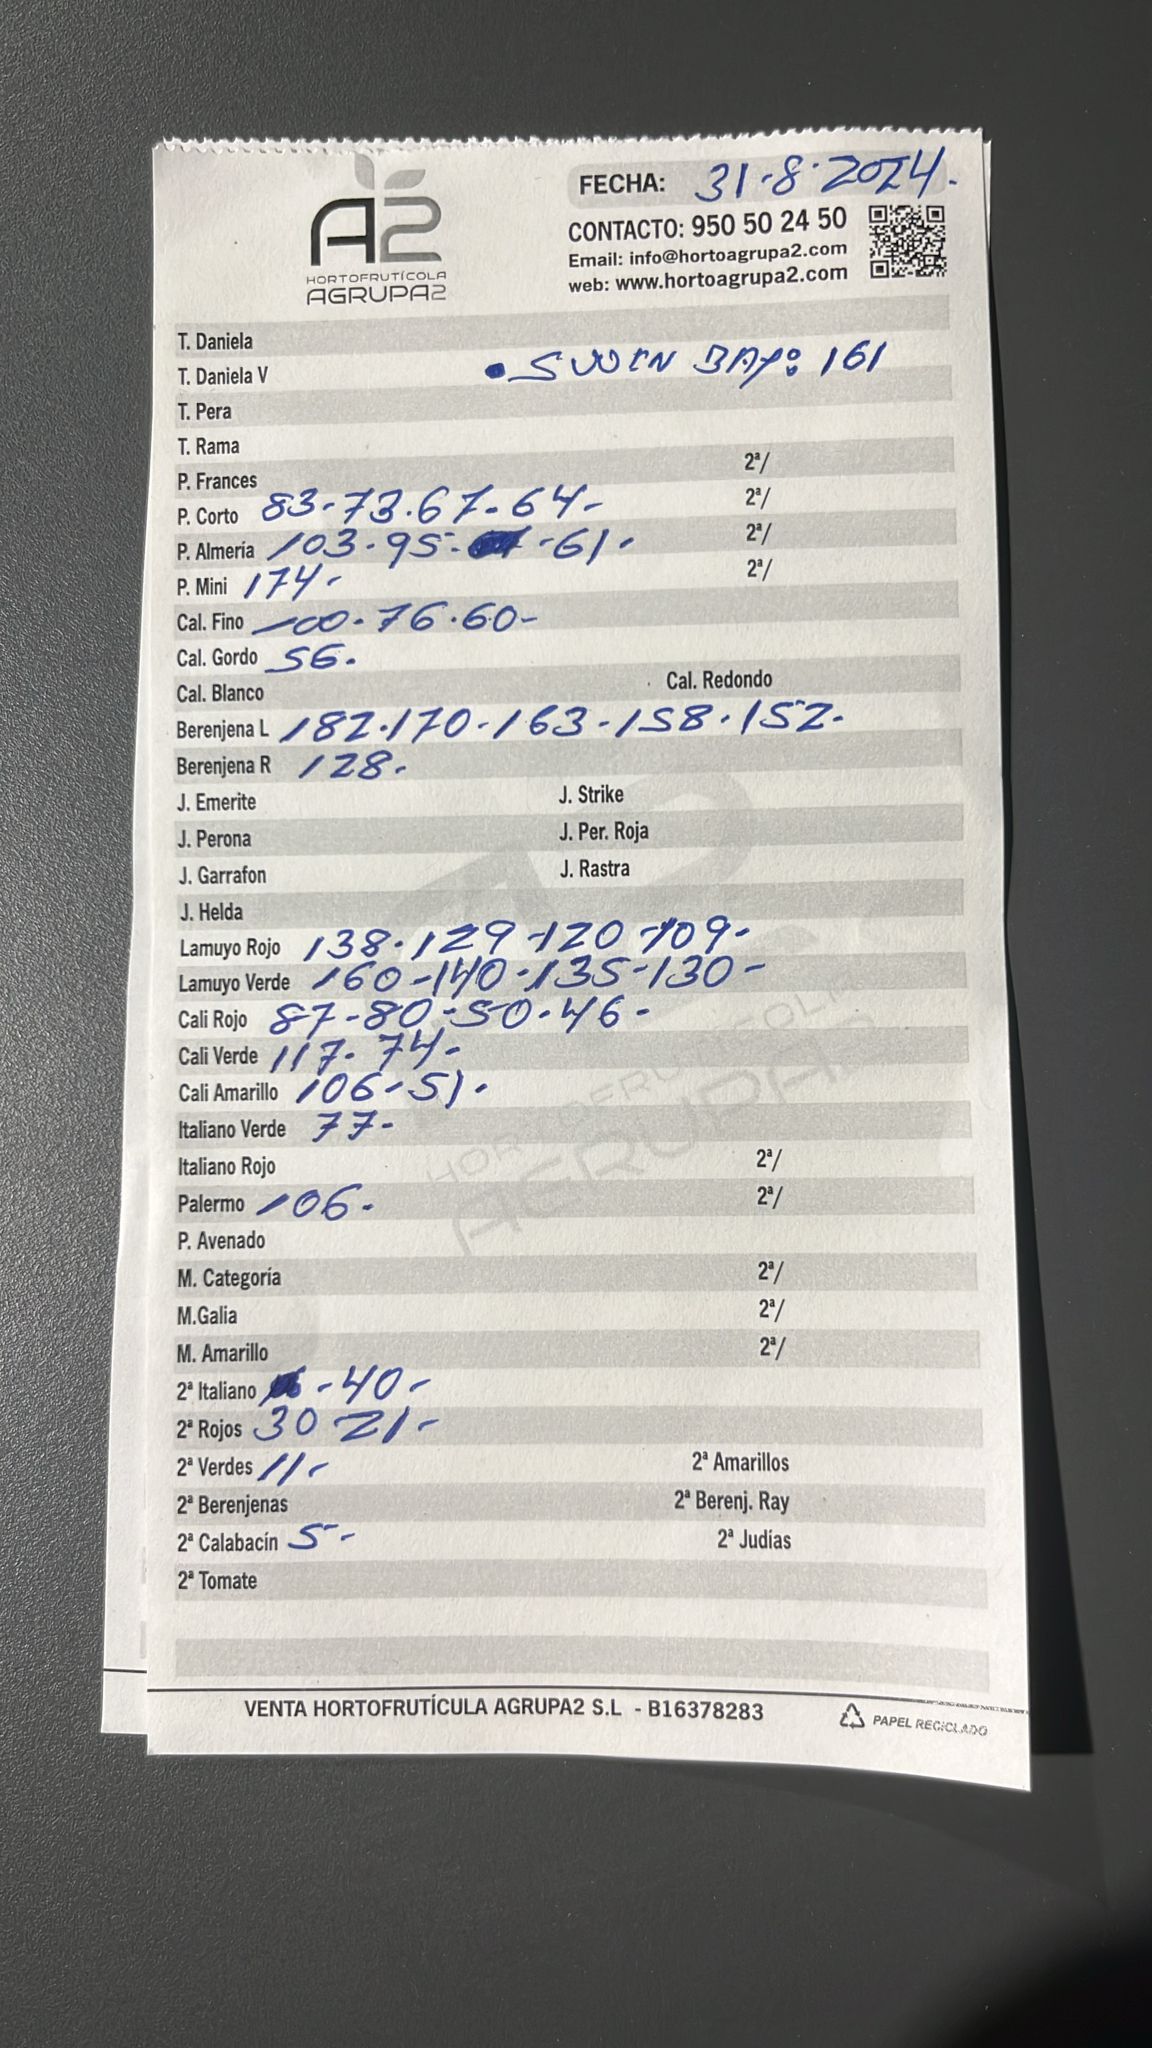 A2
HORTOFRUTÍCOLA
AGRUPA2
FECHA: 31-8-2024.
CONTACTO: 950 50 24 50
Email: info@hortoagrupa2.com
web: www.hortoagrupa2.com
T. Daniela
T. Daniela V • SWEN BAY: 161
T. Pera
T. Rama
P. Frances 2ª/
P. Corto 83-73.67-64- 2ª/
P. Almería 103.95- -61. 2ª/
P. Mini 174- 2ª/
Cal. Fino 100.76.60-
Cal. Gordo 56.
Cal. Blanco Cal. Redondo
Berenjena L 182.170-163-158.152-
Berenjena R 128.
J. Emerite J. Strike
J. Perona J. Per. Roja
J. Garrafon J. Rastra
J. Helda
Lamuyo Rojo 138.129-120-109-
Lamuyo Verde 160-140-135-130-
Cali Rojo 87-80-50.46-
Cali Verde 117-74-
Cali Amarillo 106-51-
Italiano Verde 77-
Italiano Rojo 2ª/
Palermo 106. 2ª/
P. Avenado
M. Categoría 2ª/
M.Galia 2ª/
M. Amarillo 2ª/
2ª Italiano -40-
2ª Rojos 30 21-
2ª Verdes 11- 2ª Amarillos
2ª Berenjenas 2ª Berenj. Ray
2ª Calabacín 5- 2ª Judías
2ª Tomate
VENTA HORTOFRUTÍCULA AGRUPA2 S.L - B16378283
PAPEL RECICLADO